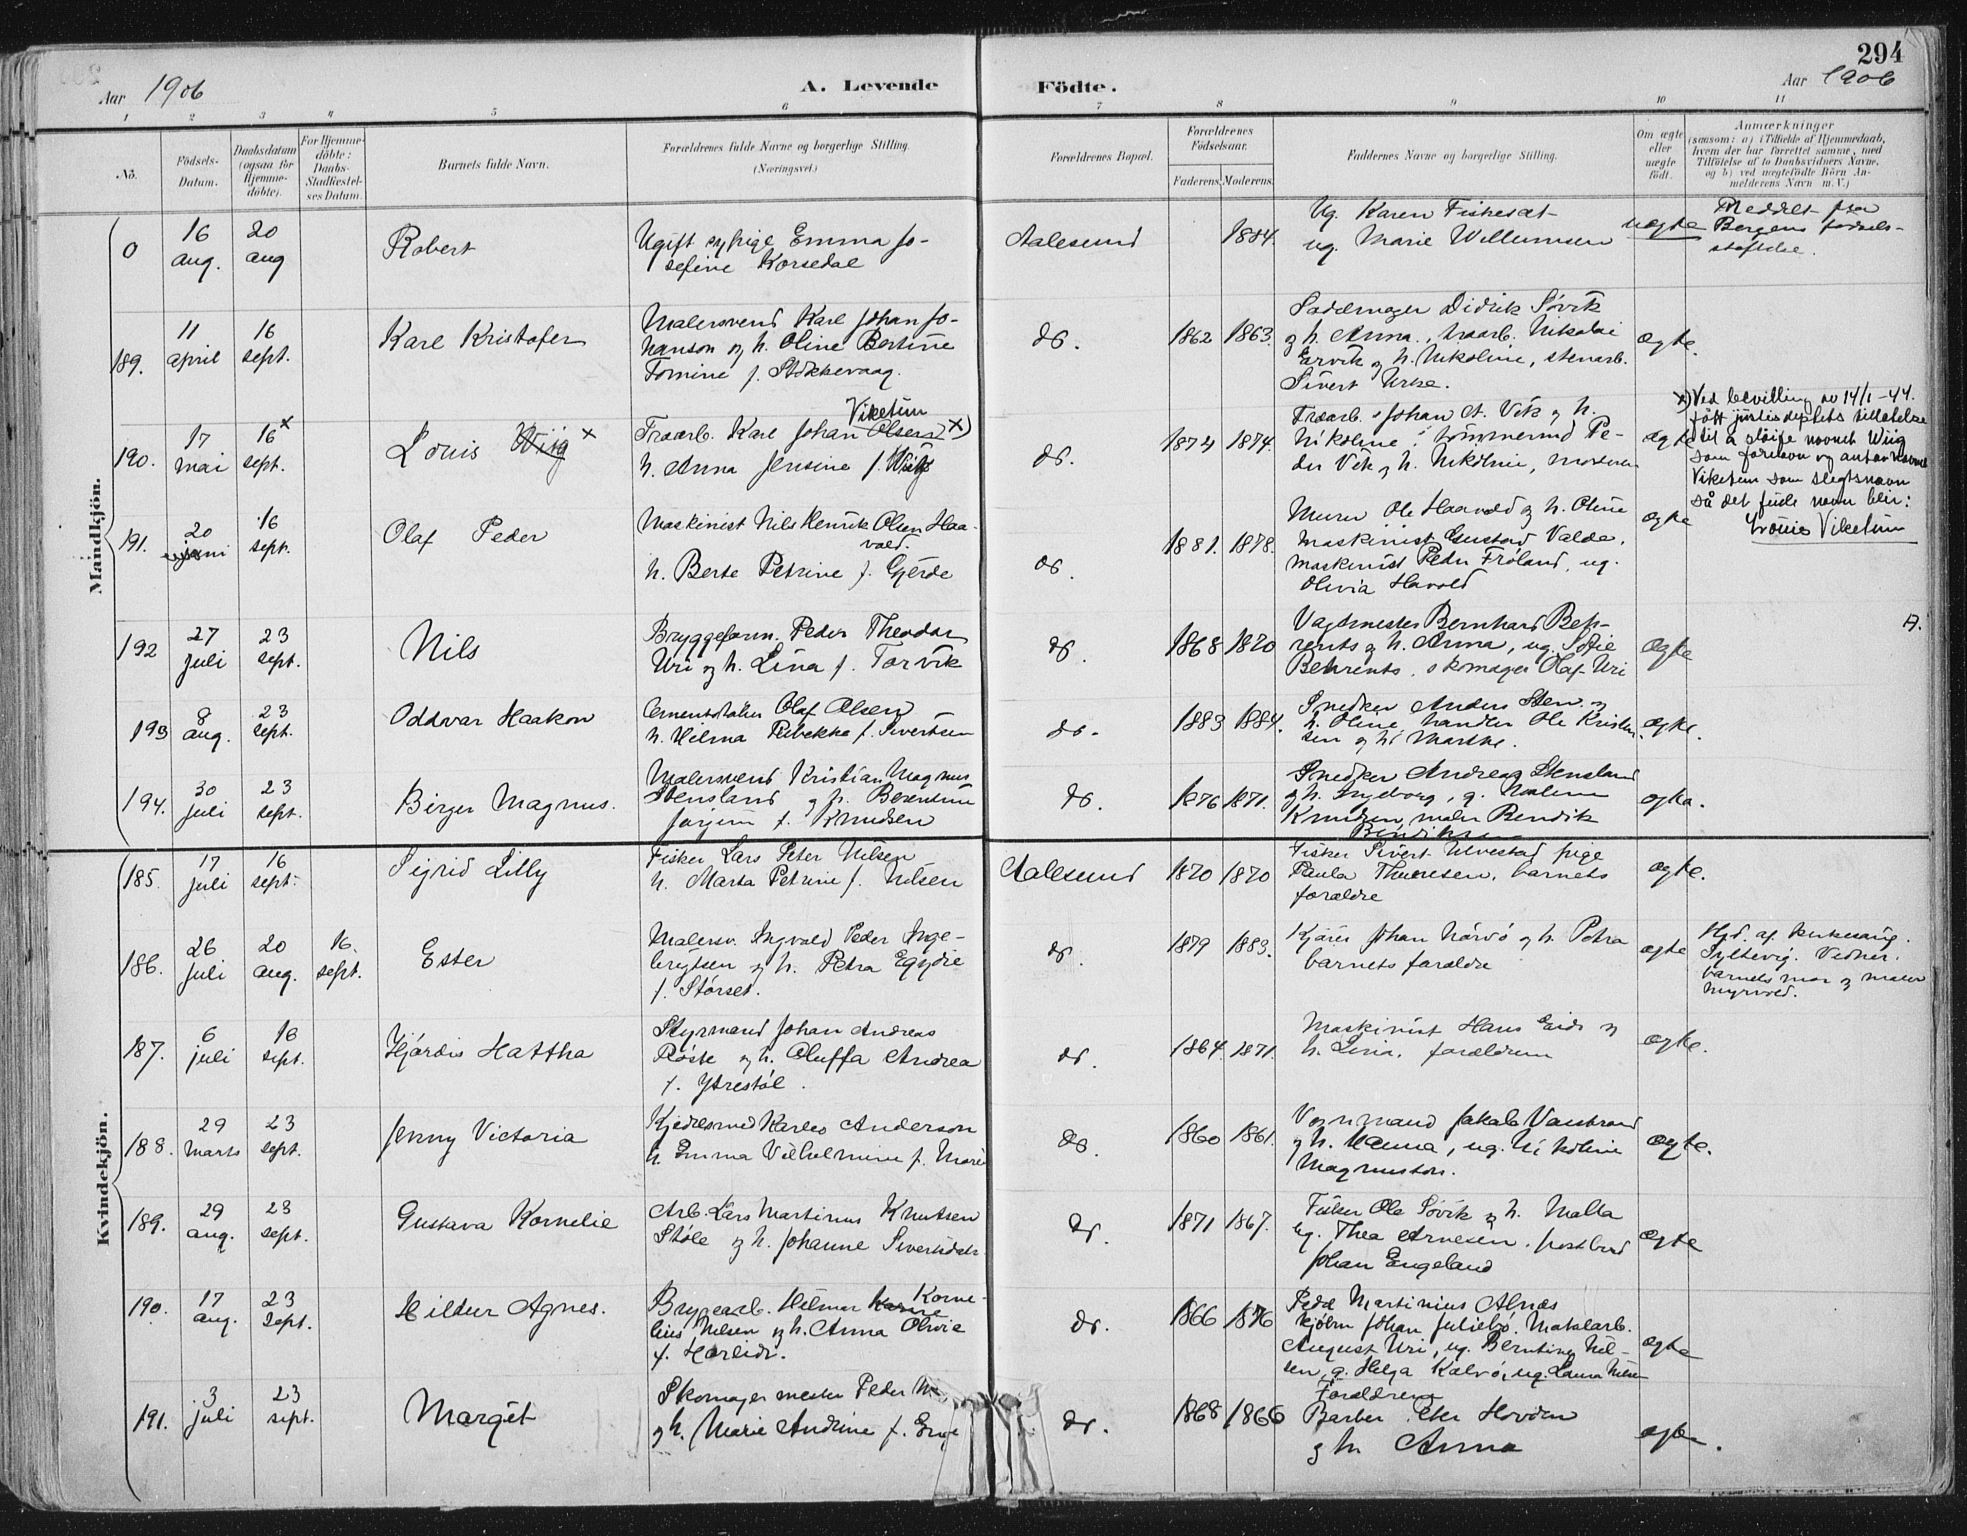 294
Aar 1906
A. Levende Födte.
Aar 1906
1 2 3 4 5 6 7 8 9 10 11
No.
Födsels-Datum.
Daabsdatum (ogsaa for Hjemme-döbte).
For Hjemme-döbte: Daabs-Stadfæstel-ses Datum.
Barnets fulde Navn.
Forældrenes fulde Navne og borgerlige Stilling. (Næringsvei.)
Forældrenes Bopæl.
Forældrenes Födselsaar.
Faderens. Moderens.
Faddernes Navne og borgerlige Stilling.
Om ægte eller uægte födt.
Anmærkninger
(saasom: a) i Tilfælde af Hjemmedaab,
hvem der har forrettet samme, med
Tilföielse af to Daabsvidners Navne,
og b) ved uægtefödte Börn An-
melderens Navn m. V.)
Mandkjön.
0
16 aug.
20 aug
Robert
Ugift pige Emma Jo-
sefine Korsedal
Aalesund
1884.
Ug. Karen Fiskesæt
ug. Marie Willumsen
uægte
Meddelt fra
Bergens födsels-
stiftelse.
189.
11 april
16 sept.
Karl Kristofer
Malersvend Karl Johan Jo-
hanson og h. Oline Bertine
Tomine f. Stokkevaag.
do.
1862 1863.
Sadelmager Didrik Sövik
og h. Anna, træarb. Nikolai
Ervik og h. Nikoline, stenarb.
Sivert Urke.
ægte.
190.
17 mai
16 x sept.
Louis Wiig x
Viketun
Træarb. Karl Johan Olsen x)
h. Anna Jensine f. Wiig
do.
1874 1874.
Træarb. Johan A. Vik og h.
Nikoline, tömmermd Pe-
der Vik og h. Nikoline, moderen
ægte
x) Ved bevilling av 14/1-44.
fått justisdeptets tillatelse
til å slöife navnet Wiig
som fornavn og anta navnet
Viketun som slegtsnavn
så det fulde navn blir:
Louis Viketun
191.
20 juni
16 sept.
Olaf Peder
Maskinist Nils Henrik Olsen Haa-
vold.
h. Berte Petrine f. Gjerde
do.
1881. 1878.
Murer Ole Haavold og h. Oline
Maskinist Gustav Valde,
maskinist Peder Fröland, ug.
Olivia Havold
ægte
192
27 juli
23 sept.
Nils
Bryggeform. Peder Theodor
Uri og h. Lina f. Torvik
do.
1868 1870
Vagtmester Bernhard Beh-
rents og h. Anna, ug. Sofie
Behrents, skomager Olaf Uri
ægte
A.
193
8 aug.
23 sept.
Oddvar Haakon
Cementstöber Olaf Olsen
h. Helma Rebekka f. Sivertsen
do.
1883 1884.
Snedker Anders Sten og
h. Oline handler Ole Kristen-
sen og h. Marthe.
ægte.
194.
30 juli
23 sept.
Birger Magnus.
Malersvend Kristian Magnus
Stensland og h. Berentine
f. Knudsen
do.
1876 1871.
Snedker Andreas Stensland
og h. Ingeborg, g. Malene
Knudsen, maler Bendik
Bendiksen
ægte.
Kvindekjön.
185.
17 juli
16 sept.
Sigrid Lilly
Fisker Lars Peter Nilsen
h. Marta Petrine f. Nilsen
Aalesund
1870 1870
Fisker Sivert Ulvestad pige
Paula Thoresen, barnets
forældre
ægte.
186.
26 juli
20 aug.
16. sept.
Ester
Malersv. Ingvald Peder Inge-
brigtsen og h. Petra Egidie
f. Störset.
do.
1879 1883.
Kjörer Johan Nörvö og h. Petra
barnets forældre
ægte
Hjd. af kirkesang.
Syltevig. Vidner.
barnets mor og maler
Myrvold.
187.
6 juli
16 sept.
Hjördis Hattha
Styrmand Johan Andreas
Röste og h. Oluffa Andrea
f. Ytrestöl.
do.
1864. 1871.
Maskinist Hans Eids og
h. Lina, forældrene
ægte.
188.
29 marts
23 sept.
Jenny Victoria
Kjedelsmed Karles Anderson
h. Emma Vilhelmine f. Marie
do.
1860 1861.
Vognmand Jakob
og h. Hanna, ug. Nikoline
Magnusson.
ægte.
189.
29 aug.
23 sept.
Gustava Kornelie
Arb. Lars Martinus Knutsen
Stöle og h. Johanne
do.
1871 1867.
Fisker Ole Sövik og h. Malla
ug. Thea Arnesen, postbud
Johan Engeland
ægte
190.
17 aug.
23 sept.
Hildur Agnes.
Bryggearb. Hilmar Korne-
lius Nilsen og h. Anna Olivie
f. Hareide.
do.
1866 1876
Peder Martinius Alnæs
kjöbm Johan Juliebö. Matalarb.
August Uri, ug. Berntine Nil-
sen, g. Helga Kalvö, ug. Laura Nilsen
Forældrene
ægte
191.
3 juli
23 sept.
Margit
Skomagermester Peder
og h. Marie Andrine f.
do.
1868 1866
Barber Peter Hovden
og h. Anna
ægte.